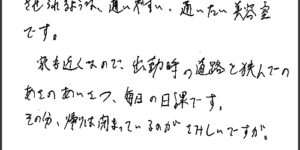 させられるような、通いやすい、通いたい美容室
です。
家も近くなので、出勤時の道路を挟んでの
あさのあいさつ、毎日の日課です。
その分、帰りは閉まっているのがさみしいですが。